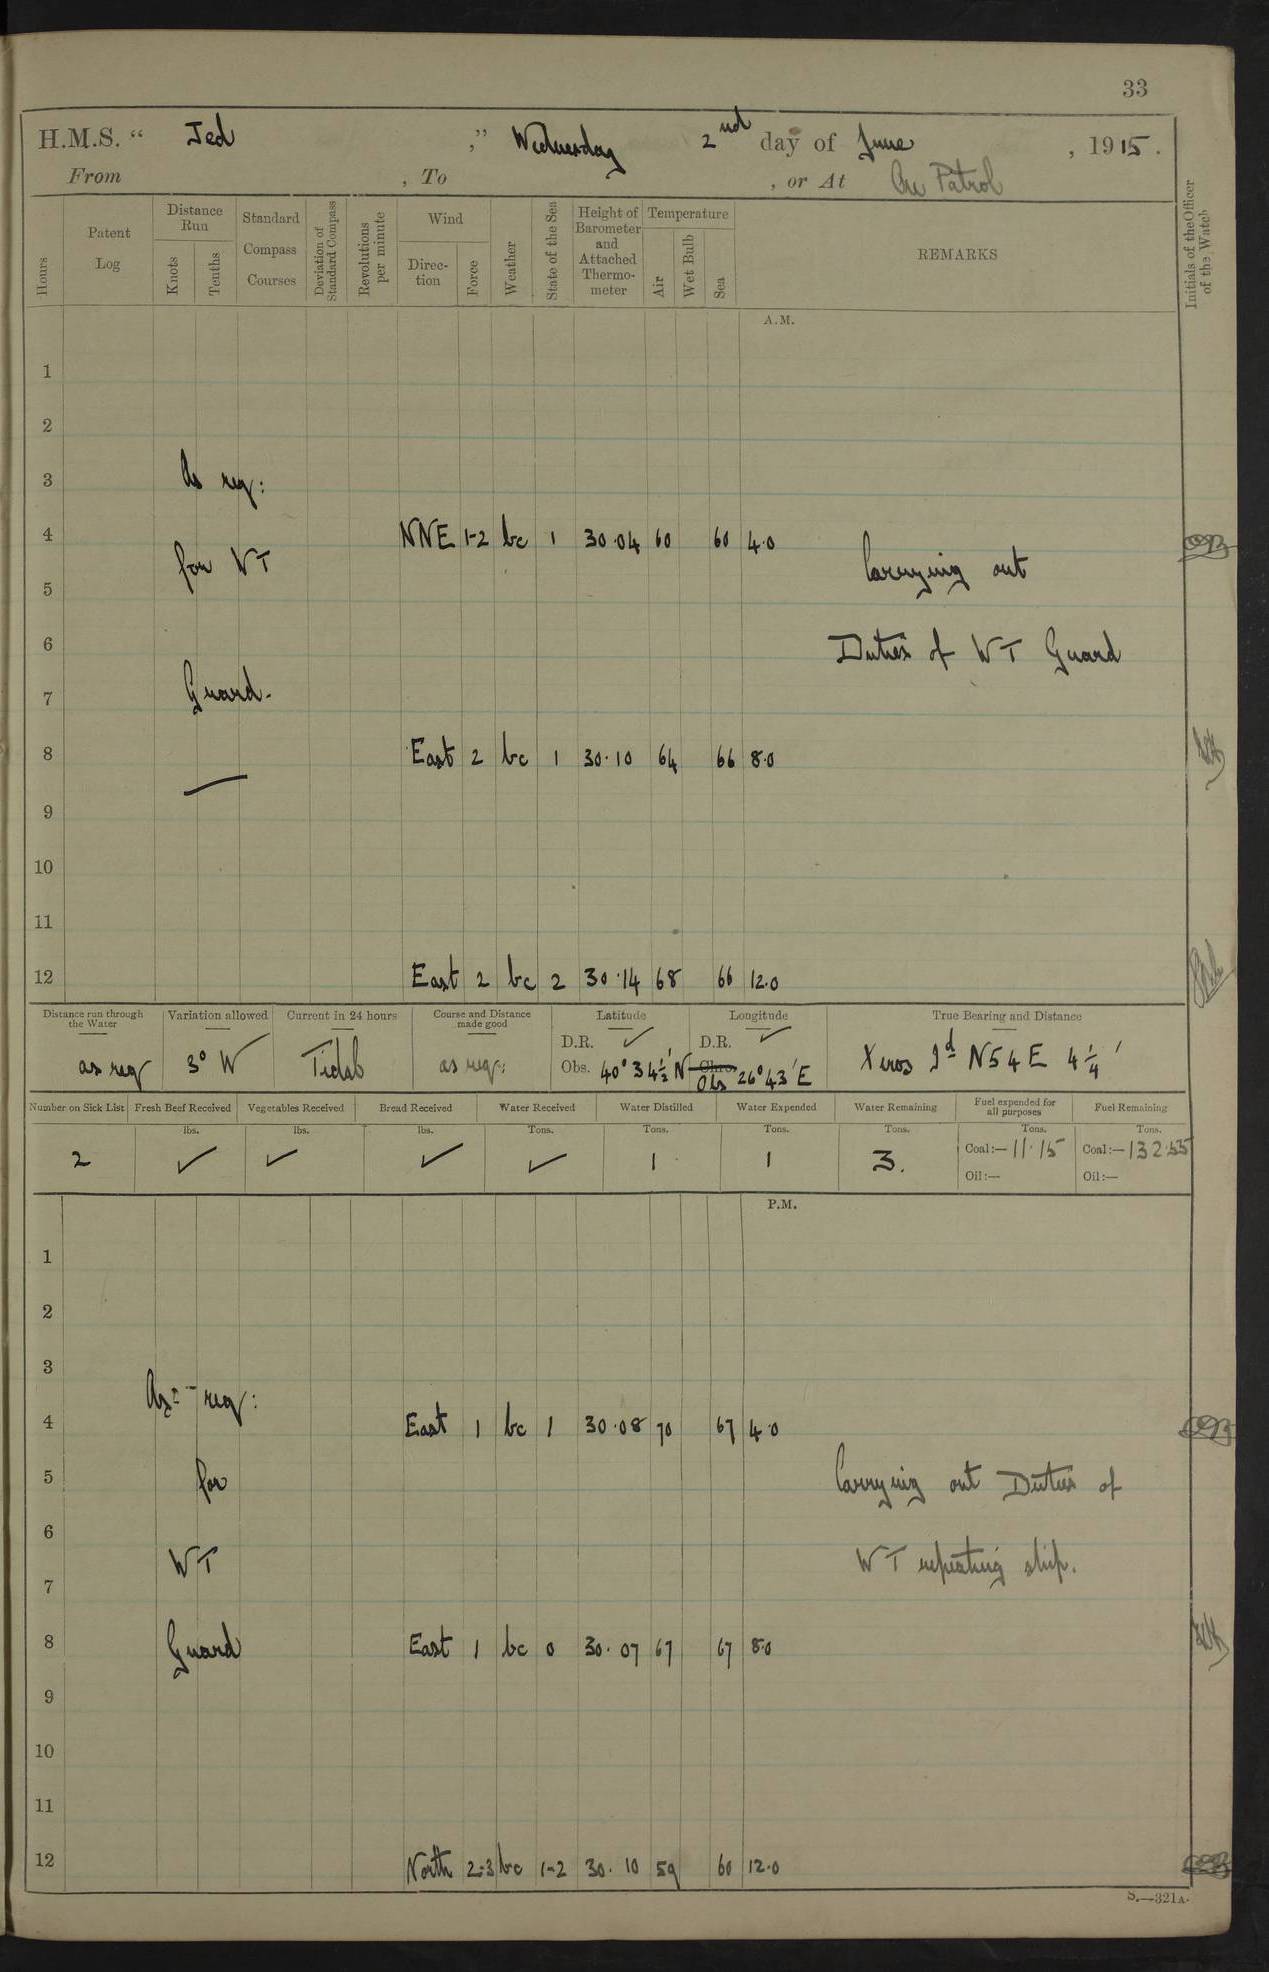 33
H.M.S. “ Jed ,” Wednesday 2nd day of June , 1915.
From , To , or At On Patrol
Hours
Patent Log
Distance Run
Knots
Tenths
Standard Compass Courses
Deviation of Standard Compass
Revolutions per minute
Wind
Direction
Force
Weather
State of the Sea
Height of Barometer and Attached Thermometer
Temperature
Air
Wet Bulb
Sea
REMARKS
Initials of the Officer of the Watch
A.M.
1
2
3 As req:
4 NNE 1-2 bc 1 30.04 60 60 4.0
for WT Carrying out
5
6 Duties of WT Guard
7 Guard.
8 East 2 bc 1 30.10 64 66 8.0
9
10
11
12 East 2 bc 2 30.14 68 66 12.0
Distance run through the Water
as req
Variation allowed
3° W
Current in 24 hours
Tidal
Course and Distance made good
as req:
Latitude
D.R. ✓
Obs. 40° 34½' N
Longitude
D.R. ✓
Obs 26° 43' E
True Bearing and Distance
Xeros Id N54E 4¼'
Number on Sick List
2
Fresh Beef Received
lbs.
✓
Vegetables Received
lbs.
✓
Bread Received
lbs.
✓
Water Received
Tons.
✓
Water Distilled
Tons.
1
Water Expended
Tons.
1
Water Remaining
Tons.
3.
Fuel expended for all purposes
Tons.
Coal:— 11.15
Oil:—
Fuel Remaining
Tons.
Coal:— 132.55
Oil:—
P.M.
1
2
3
As req:
4 East 1 bc 1 30.08 70 67 4.0
5 for Carrying out Duties of
6
WT WT repeating ship.
7
8 Guard East 1 bc 0 30.07 67 67 8.0
9
10
11
12 North 2-3 bc 1-2 30.10 59 60 12.0
S.—321A.